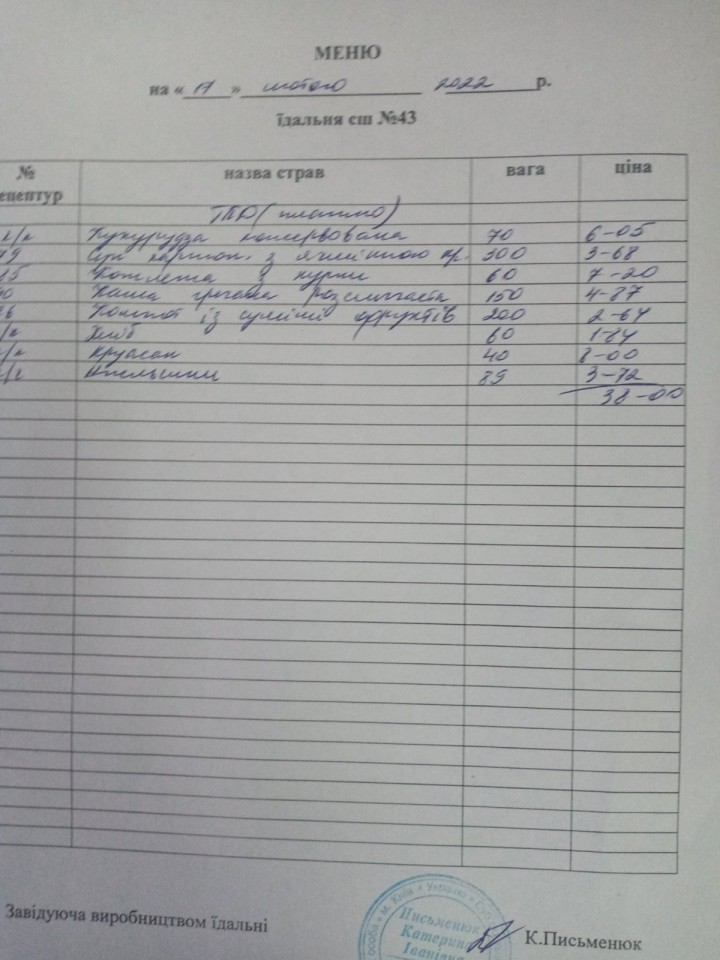 МЕНЮ
на « 17 » лютого 2022 р.
їдальня сш №43
№ назва страв вага ціна
ецептур
ГПД (платно)
к/к Кукурудза консервована 70 6-05
Суп картоп. з ячмінною кр. 300 3-68
Котлета з курки 60 7-20
Каша гречана розсипчаста 150 4-87
Компот із суміші фруктів 200 2-64
Хліб 60 1-84
Круасан 40 8-00
Апельсини 89 3-72
38-00
Завідуюча виробництвом їдальні
К.Письменюк
особа • м. Київ • Україна •
Письменюк
Катерина
Іванівна